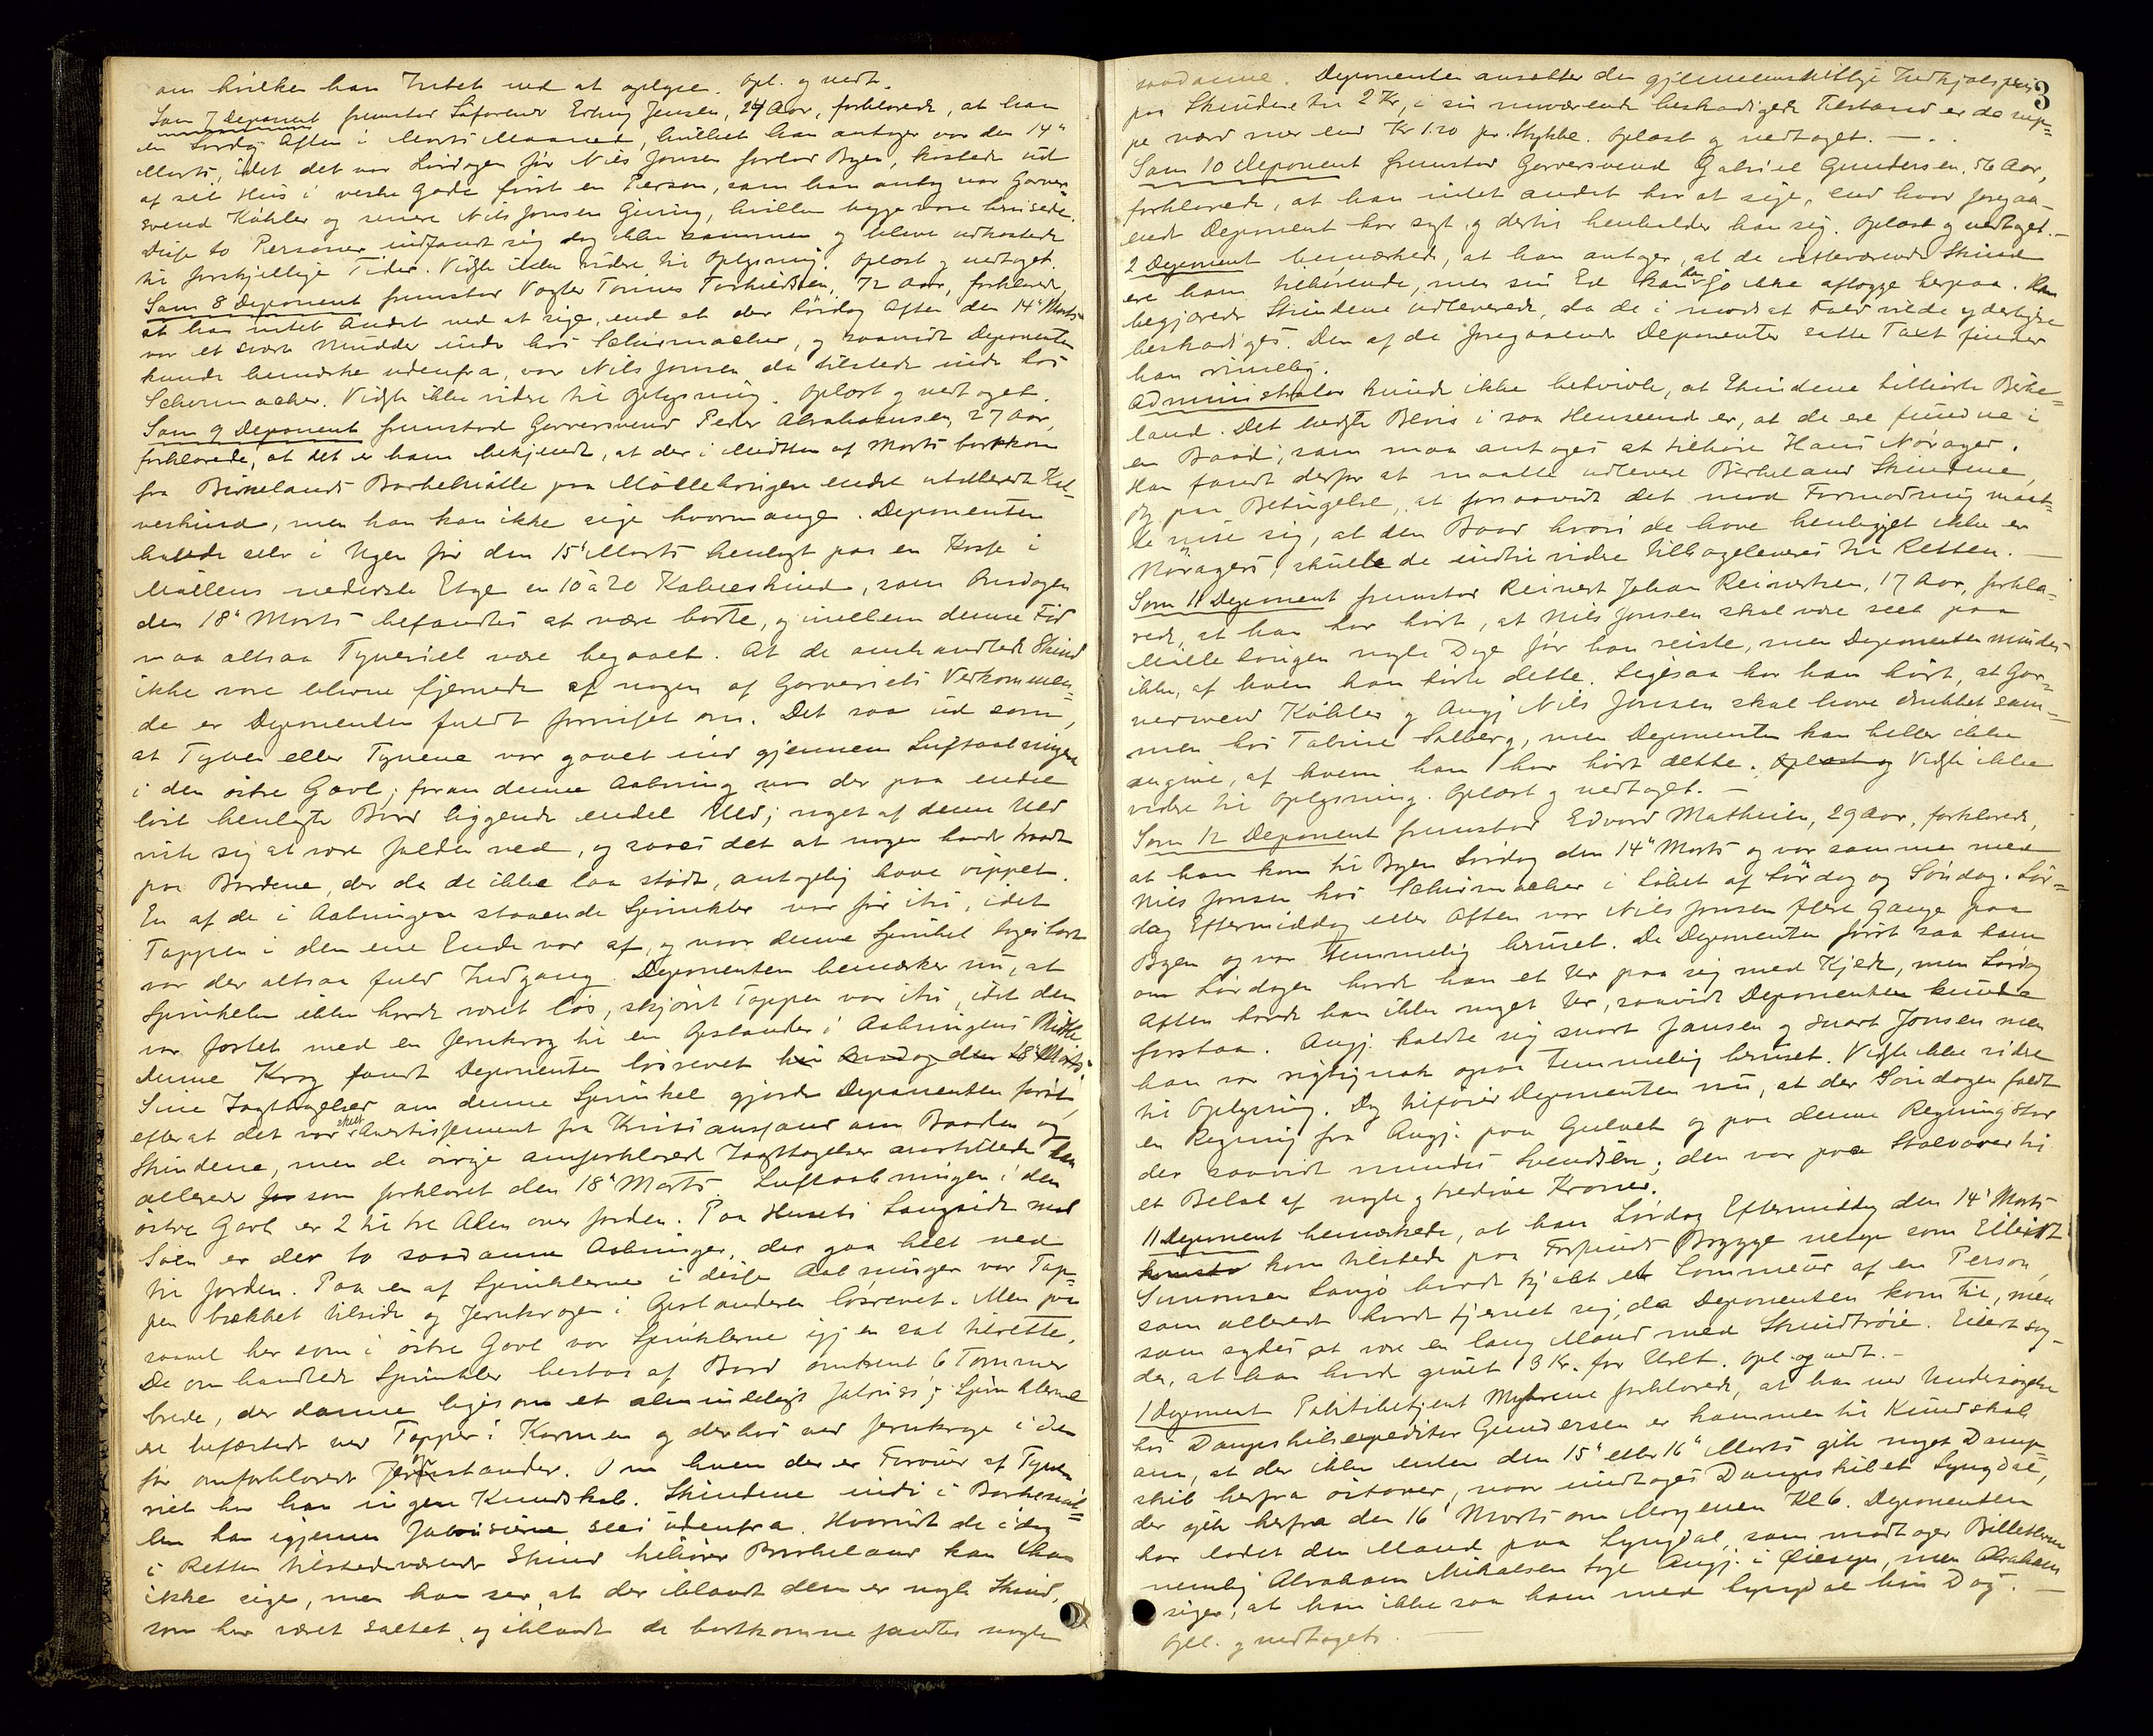 om hvilken han Intet ved at oplyse. Opl. og vedt.
Som 7 Deponent fremstod Søfarende Erling Jensen, 24 Aar, forklarede, at han
en Lördag Aften i Marts Maaned, hvilket han antager var den 14"
Marts, idet det var Lördagen för Nils Jonsen forlod Byen, kastede ud
af sit Hus i vestre Gade först en Person, som han antog var Garver
svend Köhler og senere Nils Jonsen Giering, hvilke begge vare berusede.
Disse to Personer indfandt sig dog ikke sammen og bleve udkastede
til forskjellige Tider. Vidste ikke videre til Oplysning. Oplæst og vedtaget.
Som 8 Deponent fremstod Vægter Tönnes Torkildsen, 72 Aar, forklarede,
at han intet Andet ved at sige, end at der Lördag Aften den 14" Marts
var et svært Mudder inde hos Schirmacher, og saavidt Deponenten
kunde bemærke udenfra, var Nils Jonsen da tilstede inde hos
Schirmacher. Vidste ikke videre til Oplysning. Oplæst og vedtaget.
Som 9 Deponent fremstod Garversvend Peder Abrahamsen, 27 Aar,
forklarede, at det er ham bekjendt, at der i Midten af Marts bortkom
fra Birkelands Barkemölle paa Möllebrigen endel utilberedt Kal-
veskind, men han kan ikke sige hvormange. Deponenten
havde selv i Ugen för den 15' Marts henlagt paa en Kasse i
Möllens nederste Etage en 10 à 20 Kalveskind, som Onsdagen
den 18" Marts befandtes at være borte, og imellem denne Tid
maa altsaa Tyveriet være begaaet. At de omhandlede Skind
ikke vare blevne fjernede af nogen af Garveriets Vedkommen-
de er Deponenten fuldt forvisset om. Det saa ud som,
at Tyven eller Tyvene var gaaet ind gjennem Luftaabningen
i den östre Gavl; foran denne Aabning var der paa endel
löst henlagte Bord liggende endel Uld; noget af denne Uld
viste sig at være falden ned, og saaes det at nogen havde traadt
paa Bordene, der da de ikke laa stödt, antagelig have vippet.
En af de i Aabningen staaende Sprinkler var för itu, idet
Tappen i den ene Ende var af, og naar denne Sprinkel toges bort
var der altsaa fuld Indgang. Deponenten bemærker nu, at
Sprinkelen ikke havde været lös, skjönt Tappen var itu, idet den
var fæstet med en Jernkrog til en Opstander i Aabningens Midte.
Denne Krog fandt Deponenten lösrevet hin Onsdag den 18' Marts.
Sine Iagttagelser om denne Sprinkel gjorde Deponenten först,
efter at det var skeet Avertissement fra Kristianssand om Baaden og
Skindene, men de övrige omforklarede Iagttagelser anstillede han
allerede som forklaret den 18" Marts. Luftaabningen i den
östre Gavl er 2 til tre Alen over Jorden. Paa Husets Langside mod
Söen er der to saadanne Aabninger, der gaa helt ned
til Jorden. Paa en af Sprinklerne i disse Aabninger var Tap-
pen brækket tilside og Jernkrogen i Opstanderen lösrevet. Men paa
saavel her som i östre Gavl var Sprinklerne igjen sat tilrette.
De omhandlede Sprinkler bestaa af Bord omtrent 6 Tommer
brede, der danne ligesom et almindeligt Jalousi; Sprinklerne
ere befæstede ved Tapper i Karmen og derhos ved Jernkroge i den
för omforklarede Opstander. Om hvem der er Forøver af Tyve-
riet har han ingen Kundskab. Skindene inde i Barkemöl-
len kan igjennem Jalousierne sees udenfra. Hvorvidt de idag
i Retten tilstedeværende Skind tilhörer Birkeland kan han
ikke sige, men han ser, at der iblandt dem er nogle Skind,
som har været saltet, og iblandt de bortkomne fandtes nogle
3
saadanne. Deponenten ansætter den gjennemsnitlige Indkjøbspris
paa Skindene til 2 Kr, i sin nuværende beskadigede Tilstand er de nep-
pe værd mer end Kr 1.20 pr. Stykke. Oplæst og vedtaget. —
Som 10 Deponent fremstod Garversvend Gabriel Gundersen, 56 Aar,
forklarede, at han intet andet har at sige, end hvad foregaa-
ende Deponent har sagt og dertil henholder han sig. Oplæst og vedtaget. —
2 Deponent bemærkede, at han antager, at de tilstedeværende Skind
ere ham tilhörende, men sin Ed kan der jo ikke aflægge herpaa. Han
begjærede Skindene udleverede, da de i modsat Fald vilde yderligere
beskadiges. Den af de foregaaende Deponenter satte Taxt finder
han rimelig.
Administrator kunde ikke betvivle, at Skindene tilhörte Birke-
land. Det bedste Bevis i saa Henseende er, at de ere fundne i
en Baad, som maa antages at tilhöre Hans Nörager.
Han fandt derfor at maatte udlevere Birkeland Skindene,
dog paa Betingelse, at forsaavidt det mod Formodning maat-
te vise sig, at den Baad hvori de have henligget ikke er
Nöragers, skulle de indtil videre tilbageleveres til Retten. —
Som 11 Deponent fremstod Reinert Johan Reinertsen, 17 Aar, forkla-
rede, at han har hört, at Nils Jonsen skal være seet paa
Möllebrigen nogle Dage för han reiste, men Deponenten mindes
ikke, af hvem han hörte dette. Ligesaa har han hört, at Gar-
versvend Köhler og Angj. Nils Jonsen skal have drukket sam-
men hos Tabine Salberg, men Deponenten kan heller ikke
angive, af hvem han har hört dette. Oplæst og Vidste ikke
videre til Oplysning. Oplæst og vedtaget. —
Som 12 Deponent fremstod Edvard Mathisen, 29 Aar, forklarede,
at han kom til Byen Lördag den 14" Marts og var sammen med
Nils Jonsen hos Schirmacher i Löbet af Lördag og Söndag. Lör-
dag Eftermiddag eller Aften var Nils Jonsen flere Gange paa
Byen og var temmelig beruset. Da Deponenten först saa ham
om Lördagen havde han et Ur paa sig med Kjede, men Lördag
Aften havde han ikke noget Ur, saavidt Deponenten kunde
forstaa. Angj. kaldte sig snart Jansen og snart Jonsen men
han var rigtignok ogsaa temmelig beruset. Vidste ikke videre
til Oplysning. Dog tilföier Deponenten nu, at der Söndagen faldt
en Regning fra Angj. paa Gulvet og paa denne Regning stod
der saavidt mindes Svendsen; den var paa Stalvarer til
et Belöb af nogle og tredive Kroner.
11 Deponent bemærkede, at han Lördag Eftermiddag den 14' Marts
kom tilstede paa Brygge netop som Eilert
Simonsen Langö havde kjöbt et Lommeur af en Person,
som allerede havde fjernet sig, da Deponenten kom til, men
som sydes at være en lang Mand med Skindtröie. Eilert sag-
de, at han havde givet 13 Kr. for Uret. Opl. og vedt. —
1 Deponent Politibetjent Myhrene forklarede, at han ved Undersögelse
hos Dampskibsexpeditör Gundersen er kommen til Kundskab
om, at der ikke enten den 15" eller 16" Marts gik noget Damp-
skib herfra östover, naar undtages Dampskibet Lyngdal,
der gik herfra den 16' Marts om Morgenen Kl 6. Deponenten
har ladet den Mand paa Lyngdal, som modtager Billetterne
nemlig Abraham Mikalsen tage Angj. i Öiesyn, men Abraham
siger, at han ikke saa ham med Lyngdal hin Dag. —
Opl. og vedtaget. —